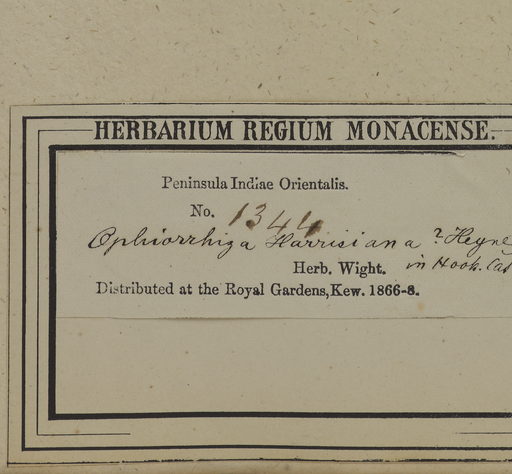 HERBARIUM REGIUM MONACENSE.
Peninsula Indiae Orientalis.
No. 1344
Ophiorrhiza Harrisiana ? Heyne
in Hook. Cat
Herb. Wight.
Distributed at the Royal Gardens, Kew. 1866-8.